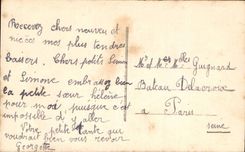 Recevez chers neuveu et
nieces mes plus tendres
baisers. Chers petits
et Simone embrassez bien
la petite sœur hélène
pour moi puisque c'est
impossible d'y aller
Votre petite tante qui
voudrait bien vous revoir
Georgette
Mr et Mme Guignard
Bateau Delacroix
a Paris
Seine